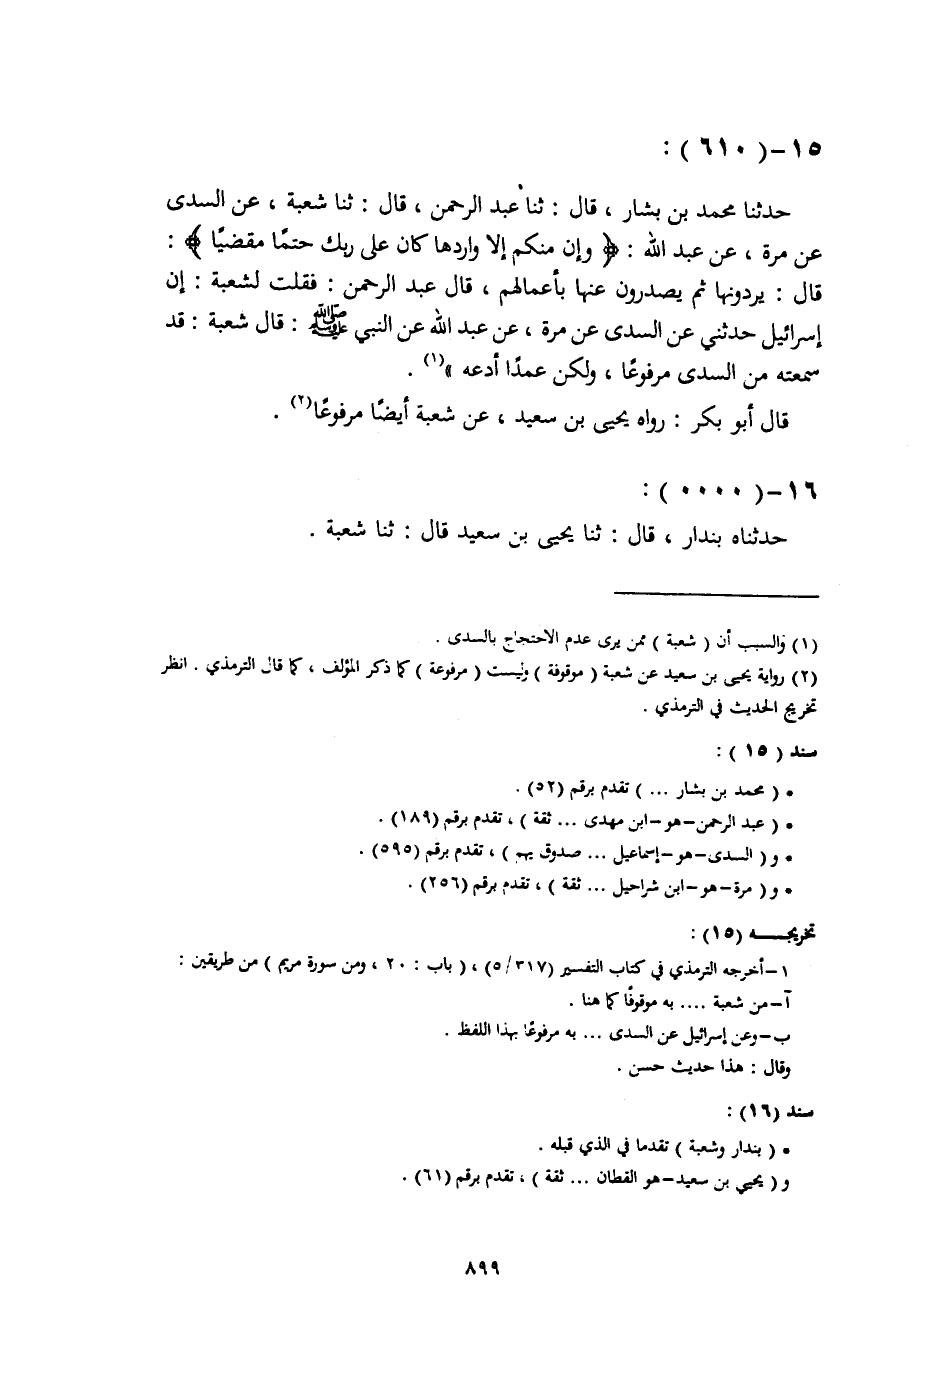 ١٥-( ٦١٠ ) :
حدثنا محمد بن بشار ، قال : ثنا عبد الرحمن ، قال : ثنا شعبة ، عن السدى
عن مرة ، عن عبد الله : ﴿ وإن منكم إلا واردها كان على ربك حتمًا مقضيًا ﴾ :
قال : يردونها ثم يصدرون عنها بأعمالهم ، قال عبد الرحمن : فقلت لشعبة : إن
إسرائيل حدثني عن السدى عن مرة ، عن عبد الله عن النبي ﷺ : قال شعبة : قد
سمعته من السدى مرفوعًا ، ولكن عمدًا أدعه »(١) .
قال أبو بكر : رواه يحيى بن سعيد ، عن شعبة أيضًا مرفوعًا(٢) .
١٦-( ٠٠٠٠ ) :
حدثناه بندار ، قال : ثنا يحيى بن سعيد قال : ثنا شعبة .
(١) والسبب أن ( شعبة ) ممن يرى عدم الاحتجاج بالسدى .
(٢) رواية يحيى بن سعيد عن شعبة ( موقوفة ) وليست ( مرفوعة ) كما ذكر المؤلف ، كما قال الترمذي . انظر
تخريج الحديث في الترمذي .
سند ( ١٥ ) :
• ( محمد بن بشار ... ) تقدم برقم (٥٢) .
• ( عبد الرحمن-هو-ابن مهدى ... ثقة ) ، تقدم برقم (١٨٩) .
• و ( السدى-هو-إسماعيل ... صدوق يهم ) ، تقدم برقم (٥٩٥) .
• و ( مرة-هو-ابن شراحيل ... ثقة ) ، تقدم برقم (٢٥٦) .
تخريجـــه (١٥) :
١-أخرجه الترمذي في كتاب التفسير (٥/٣١٧) ، ( باب : ٢٠ ، ومن سورة مريم ) من طريقين :
آ-من شعبة .... به موقوفًا كما هنا .
ب-وعن إسرائيل عن السدى ... به مرفوعًا بهذا اللفظ .
وقال : هذا حديث حسن .
سند (١٦) :
• ( بندار وشعبة ) تقدما في الذي قبله .
و ( يحيي بن سعيد-هو القطان ... ثقة ) ، تقدم برقم (٦١) .
٨٩٩